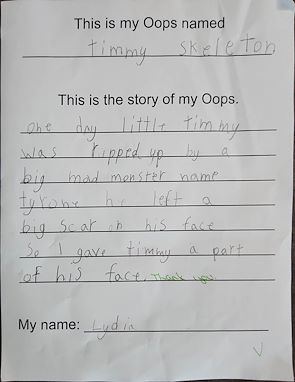 This is my Oops named
timmy skeleton
This is the story of my Oops.
one day little timmy
was ripped up by a
big mad monster name
tyrone he left a
big scar on his face
So I gave timmy a part
of his face. Thank you.
My name: Lydia